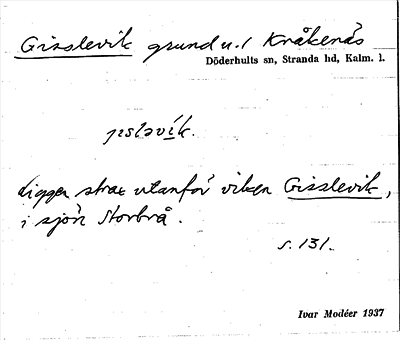 Gisslevik grund u. / Kråkenäs
Döderhults sn, Stranda hd, Kalm. l.
jɪsləvík.
Ligger strax utanför viken Gisslevik,
i sjön Storbrå.
s. 131.
Ivar Modéer 1937